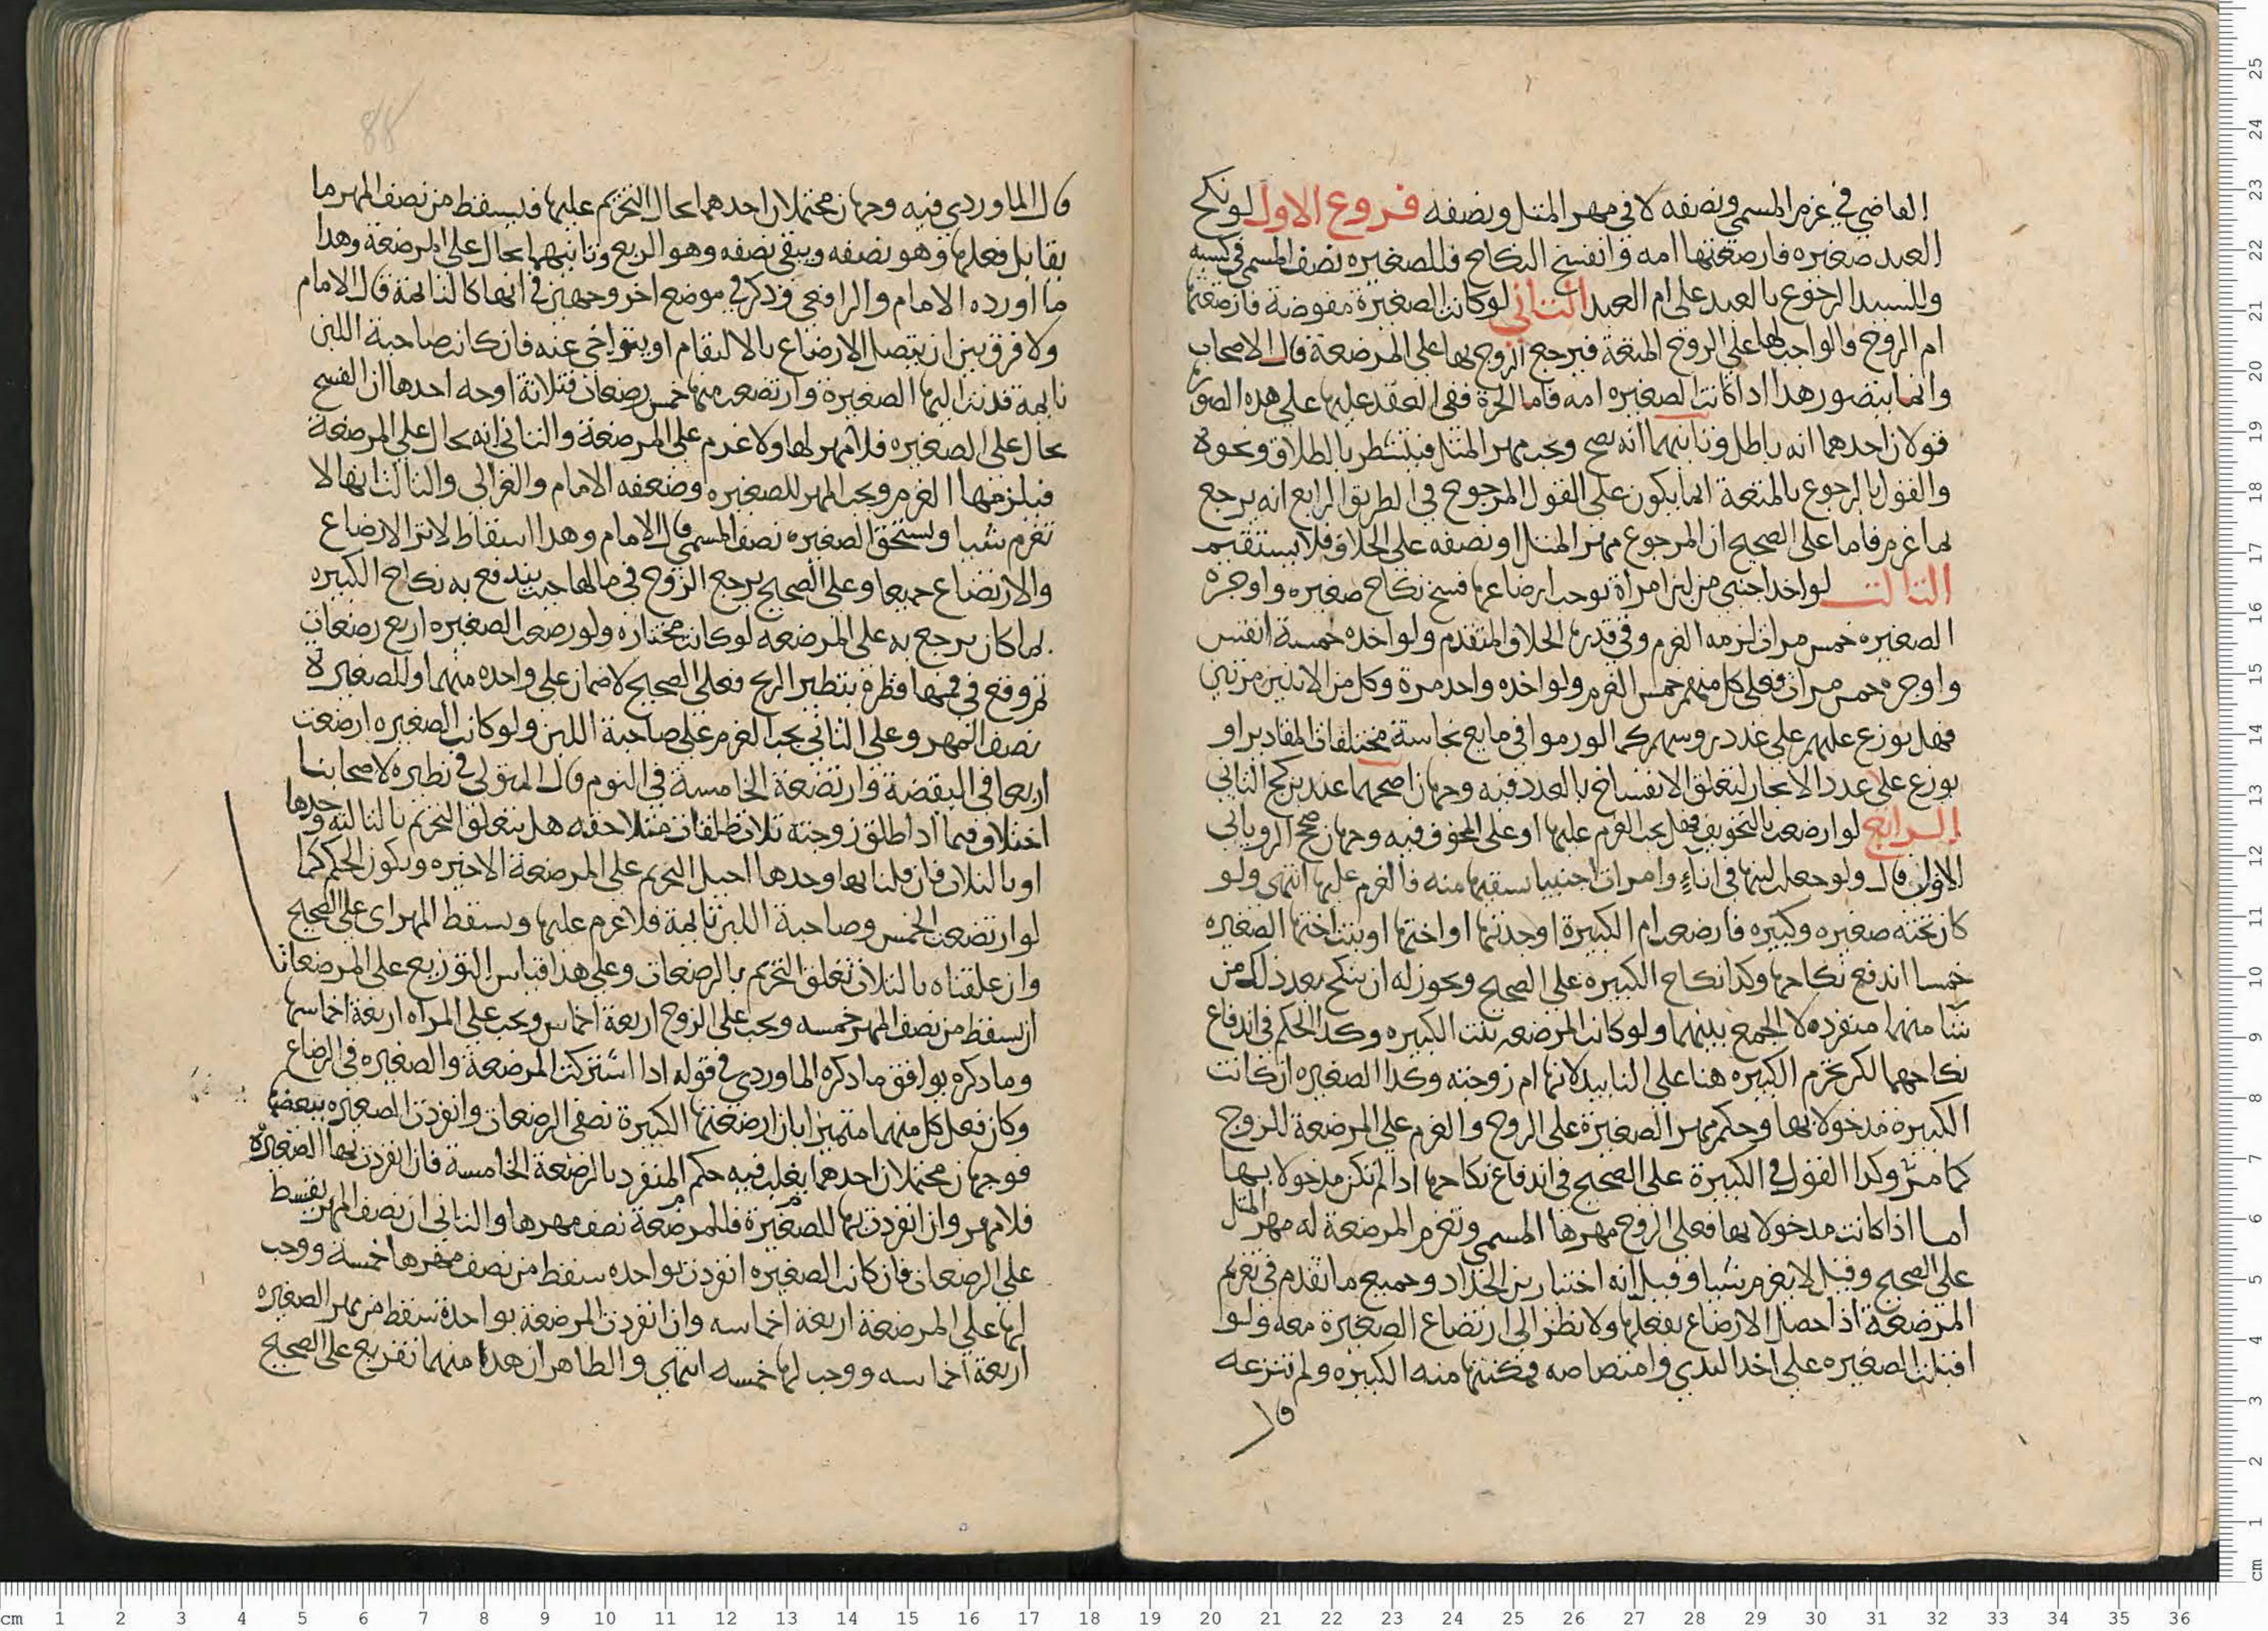 القاضي في غرم المسمي ونصفه لا في مهر المثل ونصفه فروع الاول لو نكح
العبد صغيره فارضعتها امه وانفسخ النكاح فللصغيره نصف المسمي في كسبه
وللسيد الرجوع بالعبد على ام العبد الثاني لو كانت الصغيرة مفوضة فارضعتها
ام الزوج فالواجب لها على الزوج المتعة فيرجع الزوج بها على المرضعة قال الاصحاب
وانما يتصور هذا اذا كانت الصغيره امه فاما الحرة ففي العقد عليها على هذه الصور
قولان احدهما انه باطل وثانيهما انه يصح ويجب مهر المثل فيتشطر بالطلاق ونحوه
والقول بالرجوع بالمتعة انما يكون على القول المرجوح في الطريق الرابع انه يرجع
بما غرم فاما على الصحيح ان المرجوع مهر المثل او نصفه على الخلاف فلا يستقيم
الثالث لو اخذ اجنبي من لبن امراة توجب ارضاعها فسخ نكاح صغيره واوجره
الصغيره خمس مرات لزمه الغرم وفي قدرها الخلاف المتقدم ولو اخذه خمسة انفس
واوجره خمس مرات فعلى كل منهم خمس الغرم ولو اخذه واحد مرة وكل من الاثنين مرتين
فهل يوزع عليهم على عدد روسهم كما لو رموا في مايع نجاسة مختلفات المقادير او
يوزع على عدد الايجار لتعلق الانفساخ بالعدد فيه وجهان اصحهما عند بن كج الثاني
الرابع لو ارضعت بالتخويف فهل يجب الغرم عليها او على المخوف فيه وجهان صحح الروياني
الاول قال ولو حعلت لبنها في اناء وامرت اجنبيا سقيها منه فالغرم عليها انتهى ولو
كان تحته صغيره وكبيره فارضعت ام الكبيرة او جدتها او اختها او بنت اختها الصغيره
خمسا اندفع نكاحها وكذا نكاح الكبيره على الصحيح ويجوز له ان ينكح بعد ذلك من
شا منهما منفرده لا الجمع بينهما ولو كانت المرضعه بنت الكبيره وكذا الحكم في اندفاع
نكاحهما لكن تحرم الكبيره هنا على التابيد لانها ام زوجته وكذا الصغيره ان كانت
الكبيرة مدخولا بها وحكم مهر الصغيرة على الزوج والغرم على المرضعة للزوج
كما مر وكذا القول في الكبيرة على الصحيح في اندفاع نكاحها اذا لم تكن مدخولا بها
اما اذا كانت مدخولا بها فعلى الزوج مهرها المسمي وتغرم المرضعة له مهر المثل
على الصحيح وقيل لا يغرم شيا وقيل انه اختيار بن الحداد وجميع ما تقدم في تغريم
المرضعة اذا حصل الارضاع بفعلها ولا نظر الى ارتضاع الصغيرة معه ولو
اقبلت الصغيره على اخذ الثدي وامتصاصه فمكنتها منه الكبيره ولم تنزعه
قال
قال الماوردي فيه وجهان محتملان احدهما يحال التحريم عليها فيسقط من نصف المهر ما
يقابل فعلها وهو نصفه ويبقى نصفه وهو الربع وثانيهما يحال على المرضعة وهذا
ما اورده الامام والرافعي وذكر في موضع اخر وجهين في انها كالنايمة قال الامام
ولا فرق بين ان يتصل الارضاع بالالتقام او يتراخى عنه فان كانت صاحبة اللبن
نايمة فدنت اليها الصغيرة وارتضعت منها خمس رضعات فثلاثة اوجه احدها ان الفسخ
يحال على الصغيره فلا مهر لها ولا غرم على المرضعة والثاني انه يحال على المرضعة
فيلزمها الغرم ويجب المهر للصغيره وضعفه الامام والغزالي والثالث انها لا
تغرم شيا ويستحق الصغيره نصف المسمي قال الامام وهذا اسقاط لاثر الارضاع
والارتضاع جميعا وعلى الصحيح يرجع الزوج في مالها حيث يندفع به نكاح الكبيره
بما كان يرجع به على المرضعه لو كانت مختاره ولو رضعت الصغيره اربع رضعات
ثم وقع في فمها قطرة بتطيير الريح فعلى الصحيح لا ضمان على واحده منهما وللصغيرة
نصف المهر وعلى الثاني يجب الغرم على صاحبة اللبن ولو كانت الصغيره ارضعت
اربعا في اليقضة وارتضعة الخامسة في النوم قال المتولي في نظيره لاصحابنا
اختلاف فيما اذا طلق زوجته ثلاث طلقات متلاحقه هل يتعلق التحريم بالثالثة وحدها
او بالثلاث فان قلنا بها وحدها احيل التحريم على المرضعة الاخيره ويكون الحكم كما
لو ارتضعت الخمس وصاحبة اللبن نايمة فلا غرم عليها ويسقط المهر اى على الصحيح
وان علقناه بالثلاث تعلق التحريم بالرضعات وعلى هذا قياس التوزيع على المرضعات
ان يسقط من نصف المهر خمسه ويجب على الزوج اربعة اخماس ويجب على المراه اربعة اخماسها
وما ذكره يوافق ما ذكره الماوردي في قوله اذا اشتركت المرضعة والصغيره في الرضاع
وكان فعل كل منهما متميزا بان ارضعتها الكبيرة نصف الرضعات وانفردت الصغيره ببعضها
فوجهان محتملان احدهما يغلب فيه حكم المنفرد بالرضعة الخامسة فان انفردت بها الصغيرة
فلا مهر وان انفردت بها للصغيرة فللمرضعة نصف مهرها والثاني ان نصف المهر يقسط
على الرضعات فان كانت الصغيره انفردت بواحده سقط من نصف مهرها خمسه ووجب
لها على المرضعة اربعة اخماسه وان انفردت المرضعة بواحدة سقط من مهر الصغيره
اربعة اخماسه ووجب لها خمسه انتهى والظاهر ان هذا منهما تفريع على الصحيح